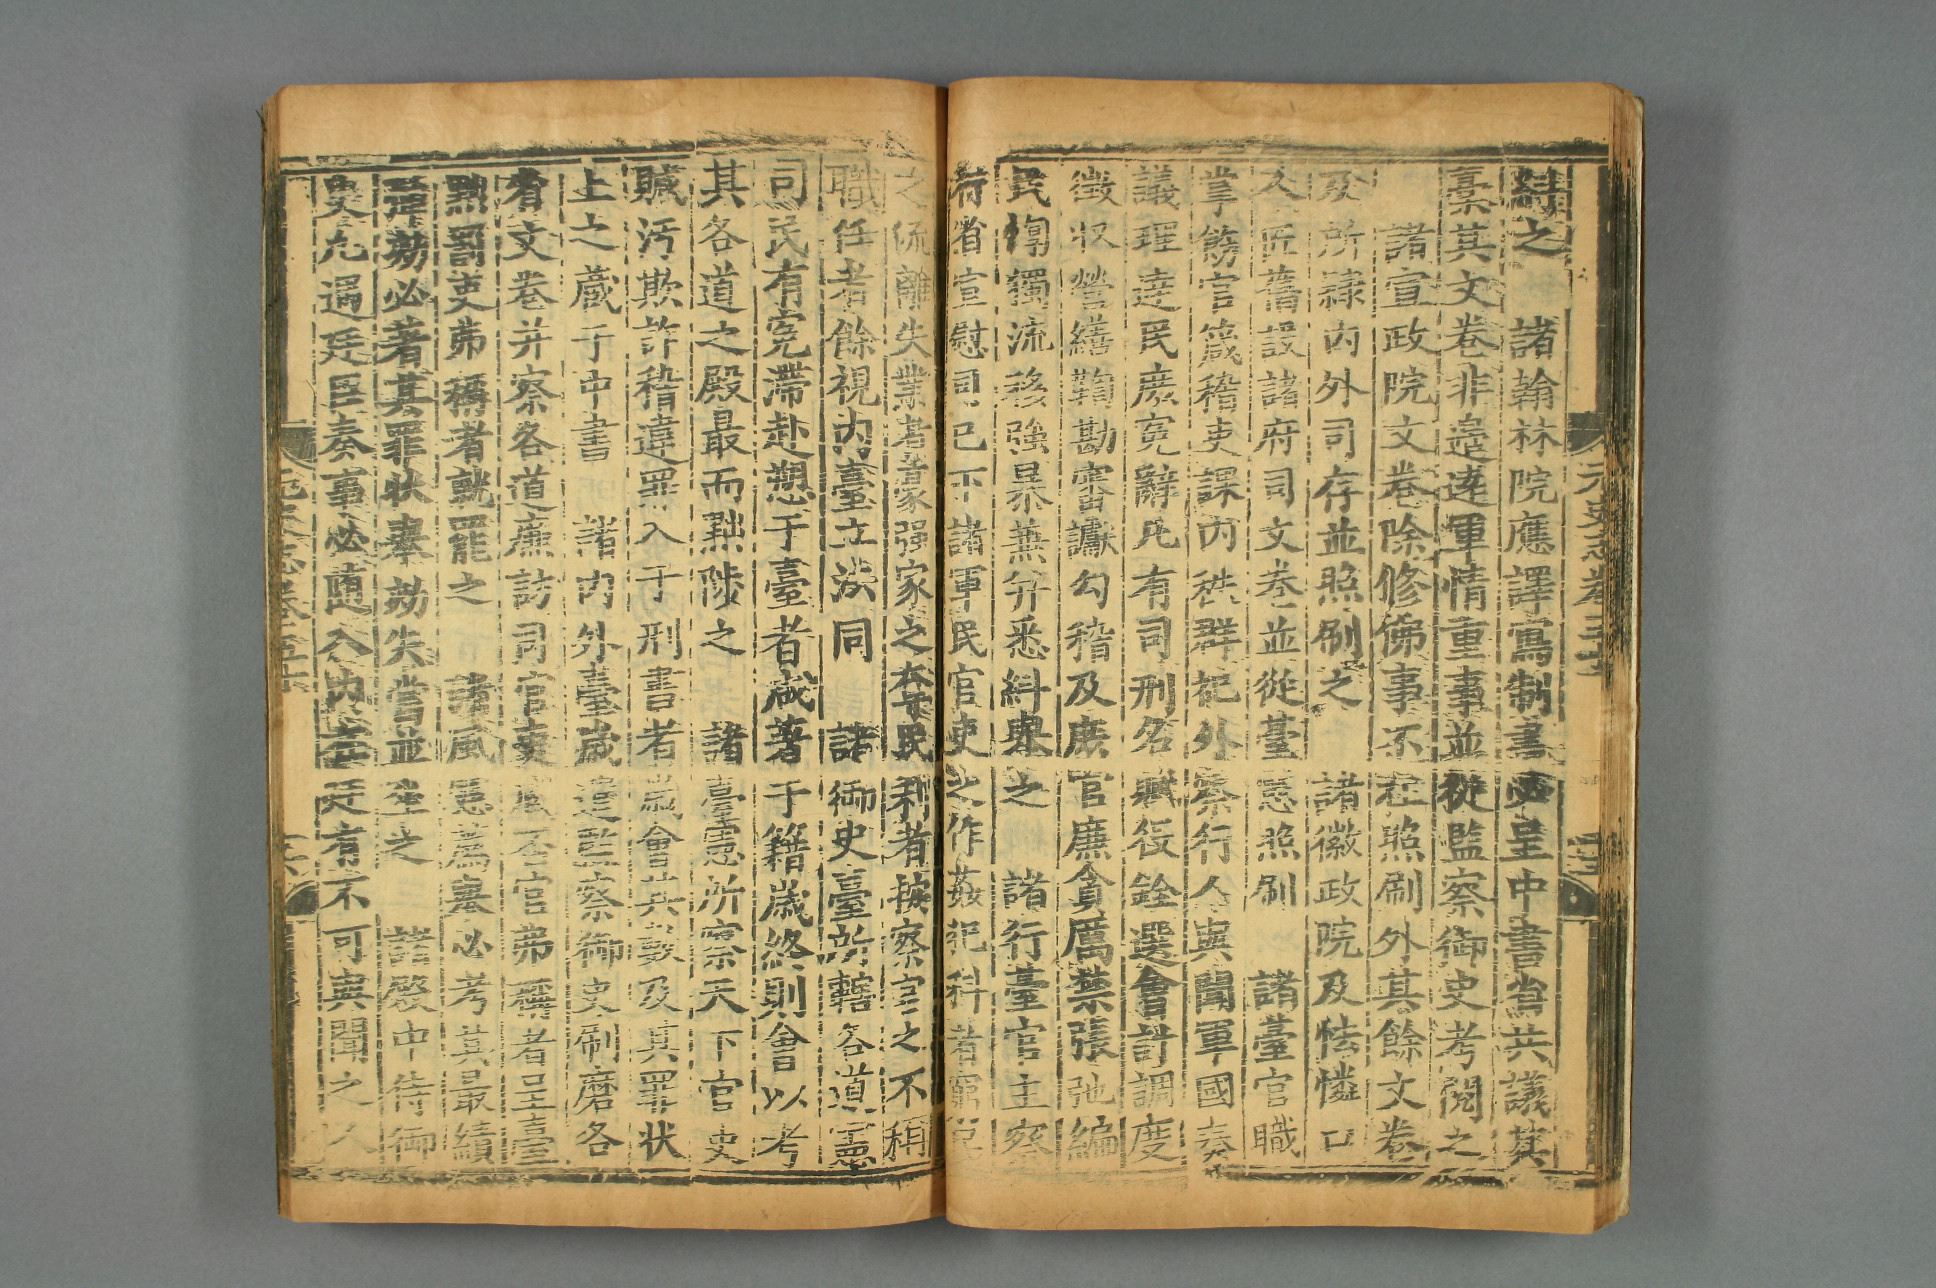 糾之　諸翰林院應譯寫制書必呈中書省共議其
稾其文卷非邊遠軍情重事並從監察御史考閱之
諸宣政院文卷除修佛事不在照刷外其餘文卷
及所隸內外司存並照刷之　諸徽政院及怯憐口
人匠舊設諸府司文卷並從臺憲照刷　諸臺官職
掌飭官箴稽吏課內秩群祀外察行人與聞軍國奏
議理達民庶寃辭凡有司刑名賦役銓選會計調度
徵收營繕鞫勘審讞勾稽及庶官廉貪厲禁張弛編
民惸獨流移強暴兼并悉糾舉之　諸行臺官主察
行省宣慰司已下諸軍民官吏之作姦犯科者窮民
之流離失業者豪強家之奪民利者按察官之不稱
職任者餘視內臺立法同　諸御史臺所轄各道憲
司民有寃滯赴愬于臺者咸著于籍歲終則會以考
其各道之殿最而黜陟之　諸臺憲所察天下官吏
贓汚欺詐稽違罪入于刑書者歲會其數及其罪狀
上之藏于中書　諸內外臺歲遣監察御史刷磨各
省文卷并察各道廉訪司官吏臧否官弟稱者呈臺
黜罰吏弟稱者就罷之　諸風憲薦舉必考其最績
彈劾必著其罪狀舉劾失當並坐之　諸殿中侍御
史凡遇廷臣奏事必隨入內在廷有不可與聞之人
元史志卷五十